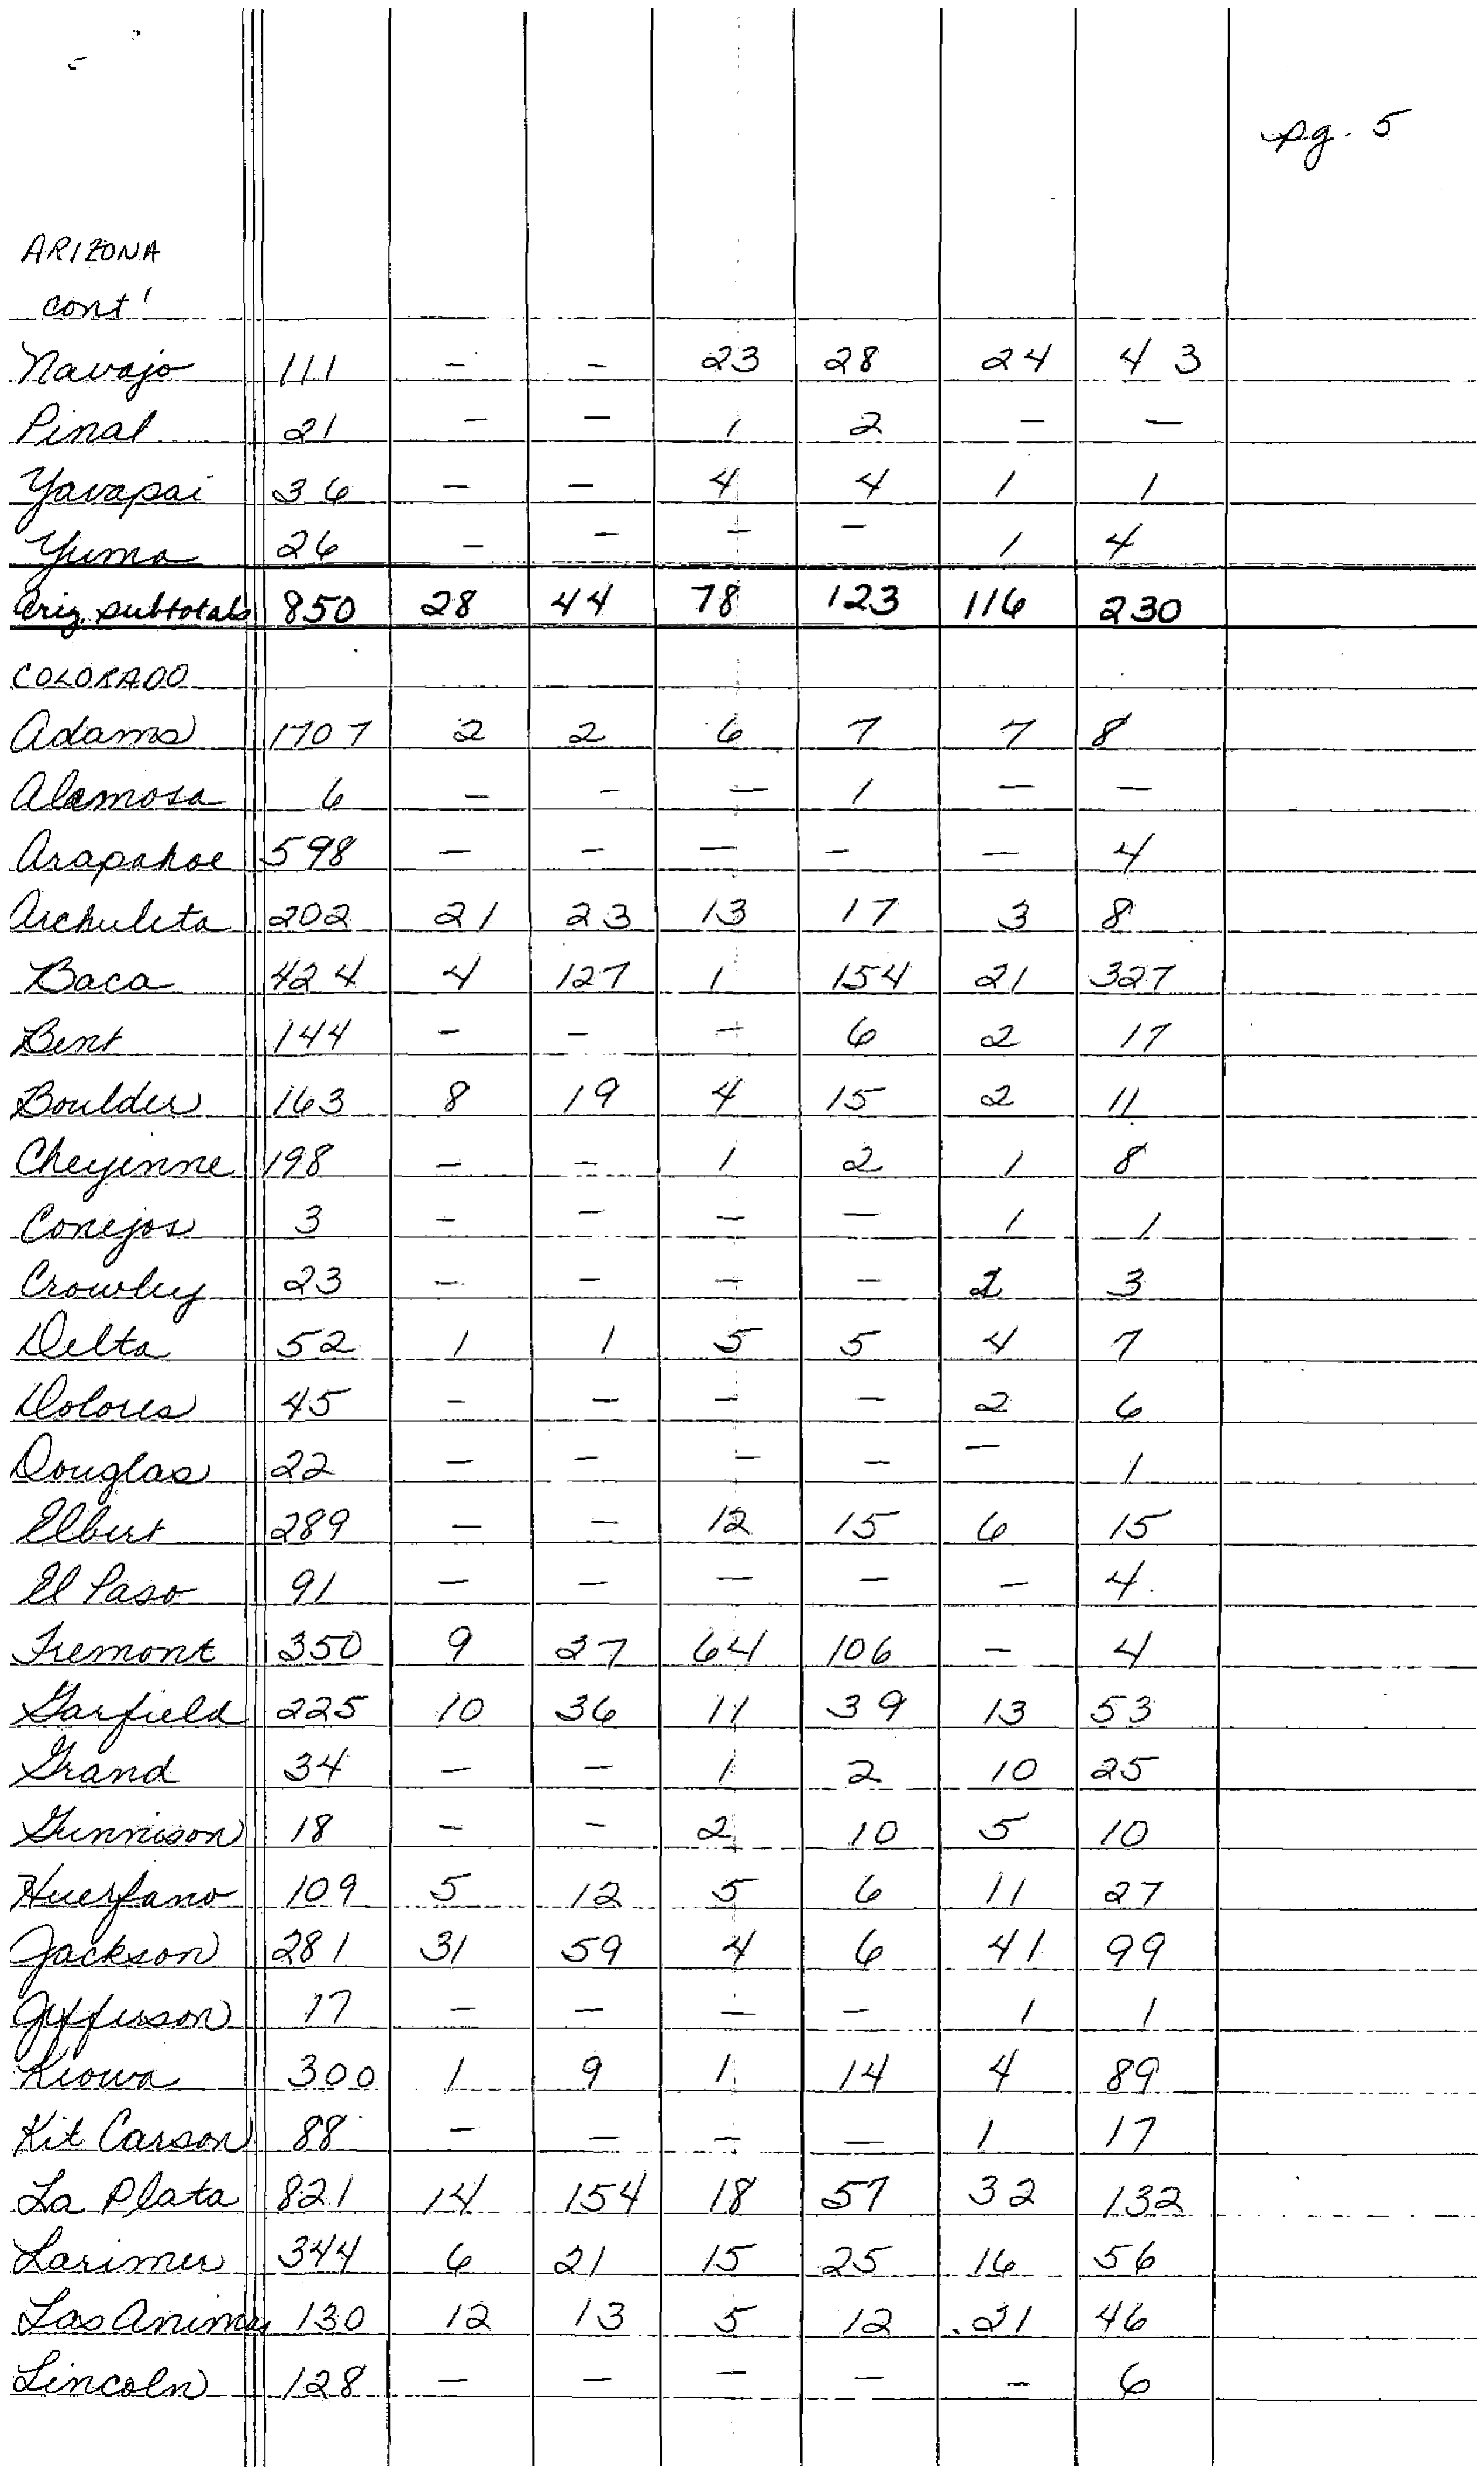 pg. 5
ARIZONA
cont'
Navajo 111 - - 23 28 24 43
Pinal 21 - - 1 2 - -
Yavapai 36 - - 4 4 1 1
Yuma 26 - - - - 1 4
Ariz subtotals 850 28 44 78 123 116 230
COLORADO
Adams 1707 2 2 6 7 7 8
Alamosa 6 - - - 1 - -
Arapahoe 598 - - - - - 4
Archuleta 202 21 23 13 17 3 8
Baca 424 4 127 1 154 21 327
Bent 144 - - - 6 2 17
Boulder 163 8 19 4 15 2 11
Cheyenne 198 - - 1 2 1 8
Conejos 3 - - - - 1 1
Crowley 23 - - - - 2 3
Delta 52 1 1 5 5 4 7
Dolores 45 - - - - 2 6
Douglas 22 - - - - - 1
Elbert 289 - - 12 15 6 15
El Paso 91 - - - - - 4
Fremont 350 9 27 64 106 - 4
Garfield 225 10 36 11 39 13 53
Grand 34 - - 1 2 10 25
Gunnison 18 - - 2 10 5 10
Huerfano 109 5 12 5 6 11 27
Jackson 281 31 59 4 6 41 99
Jefferson 17 - - - - 1 1
Kiowa 300 1 9 1 14 4 89
Kit Carson 88 - - - - 1 17
La Plata 821 14 154 18 57 32 132
Larimer 344 6 21 15 25 16 56
Las Animas 130 12 13 5 12 21 46
Lincoln 128 - - - - - 6